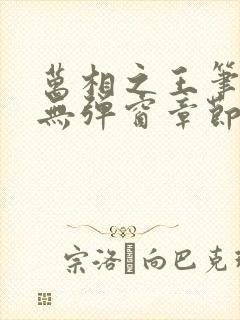 萬相之王筆
無彈窗章節
宗洛向巴克